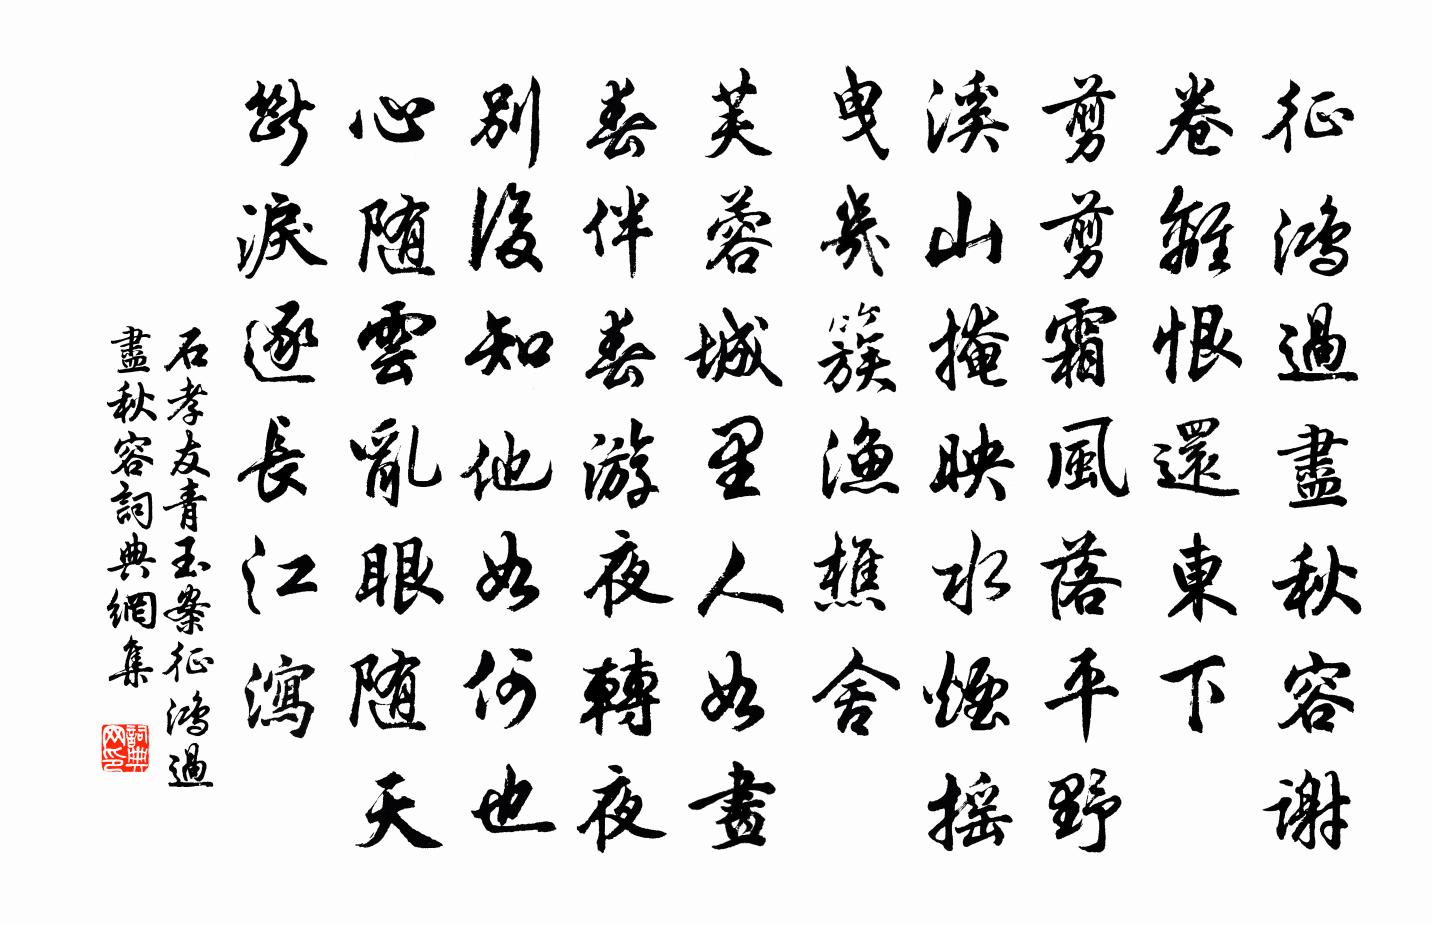 征鴻過盡秋容谢
卷離恨還東下
剪剪霜風落平野
溪山掩映水煙摇
曳幾簇漁樵舍
芙蓉城里人如畫
春伴春游夜轉夜
別後知他如何也
心随雲亂眼随天
斷淚逐長江瀉
石孝友青玉案征鴻過
盡秋容詞典網集
詞典
网印